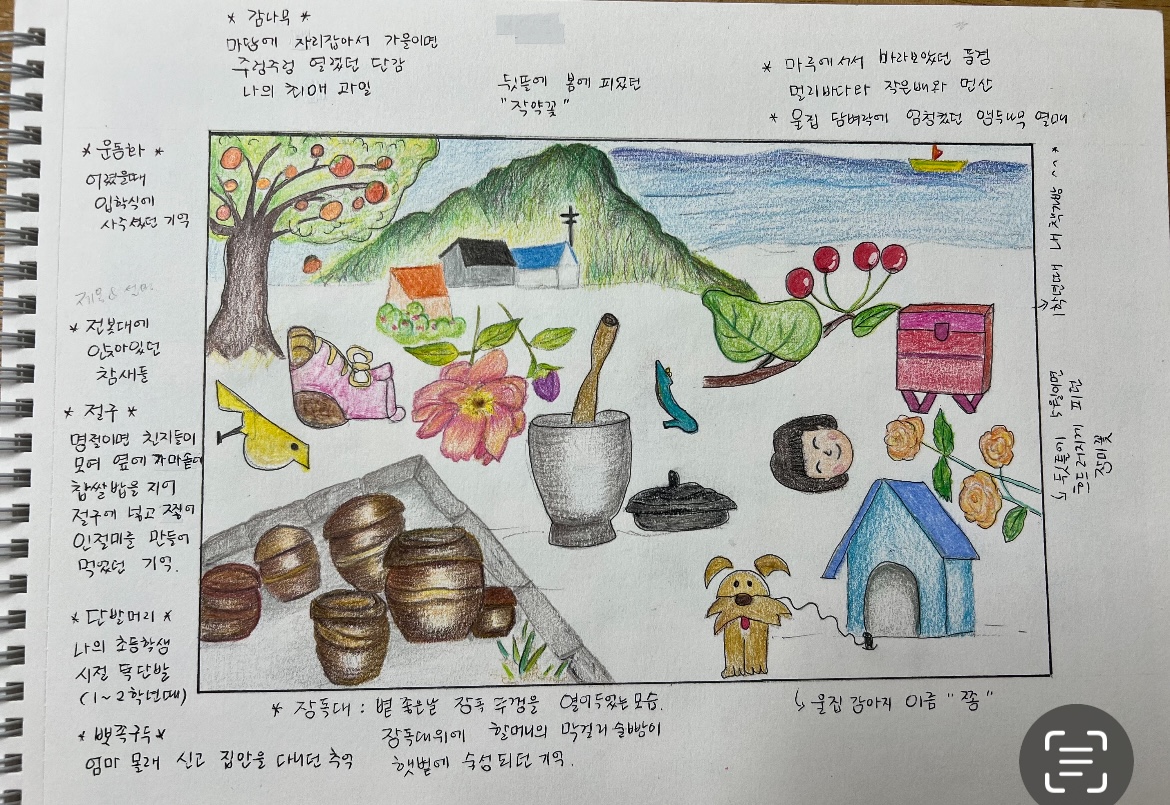 * 감나무 *
마당에 자리잡아서 가을이면
주렁주렁 열렸던 단감
나의 최애 과일
뒷뜰에 봄에 피었던
"작약꽃"
* 마루에서서 바라보았던 풍경
멀리바다라 작은배와 먼산
* 울집 담벼락에 엄청컸던 앵두나무 열매
* 운동화 *
어렸을때
입학식에
사주셨던 기억
제목 &
* 전봇대에
앉아있던
참새들
* 절구 *
명절이면 친지들이
모여 옆에 가마솥에
찹쌀밥을 지어
절구에 넣고 찧어
인절미를 만들어
먹었던 기억.
* 단발머리 *
나의 초등학생
시절 똑단발
(1~2학년때)
* 뾰쪽구두 *
엄마 몰래 신고 집안을 다니던 추억
* 장독대 : 볕 좋은날 장독 뚜껑을 열어두었는모습.
장독대위에 할머니의 막걸리 술빵이
햇볕에 숙성되던 기억.
↳ 울집 강아지 이름 "쫑"
* ~ ~ 1학년때 내 책가방
↳ 뒷뜰에 5월이면
흐드러지게 피던
장미꽃